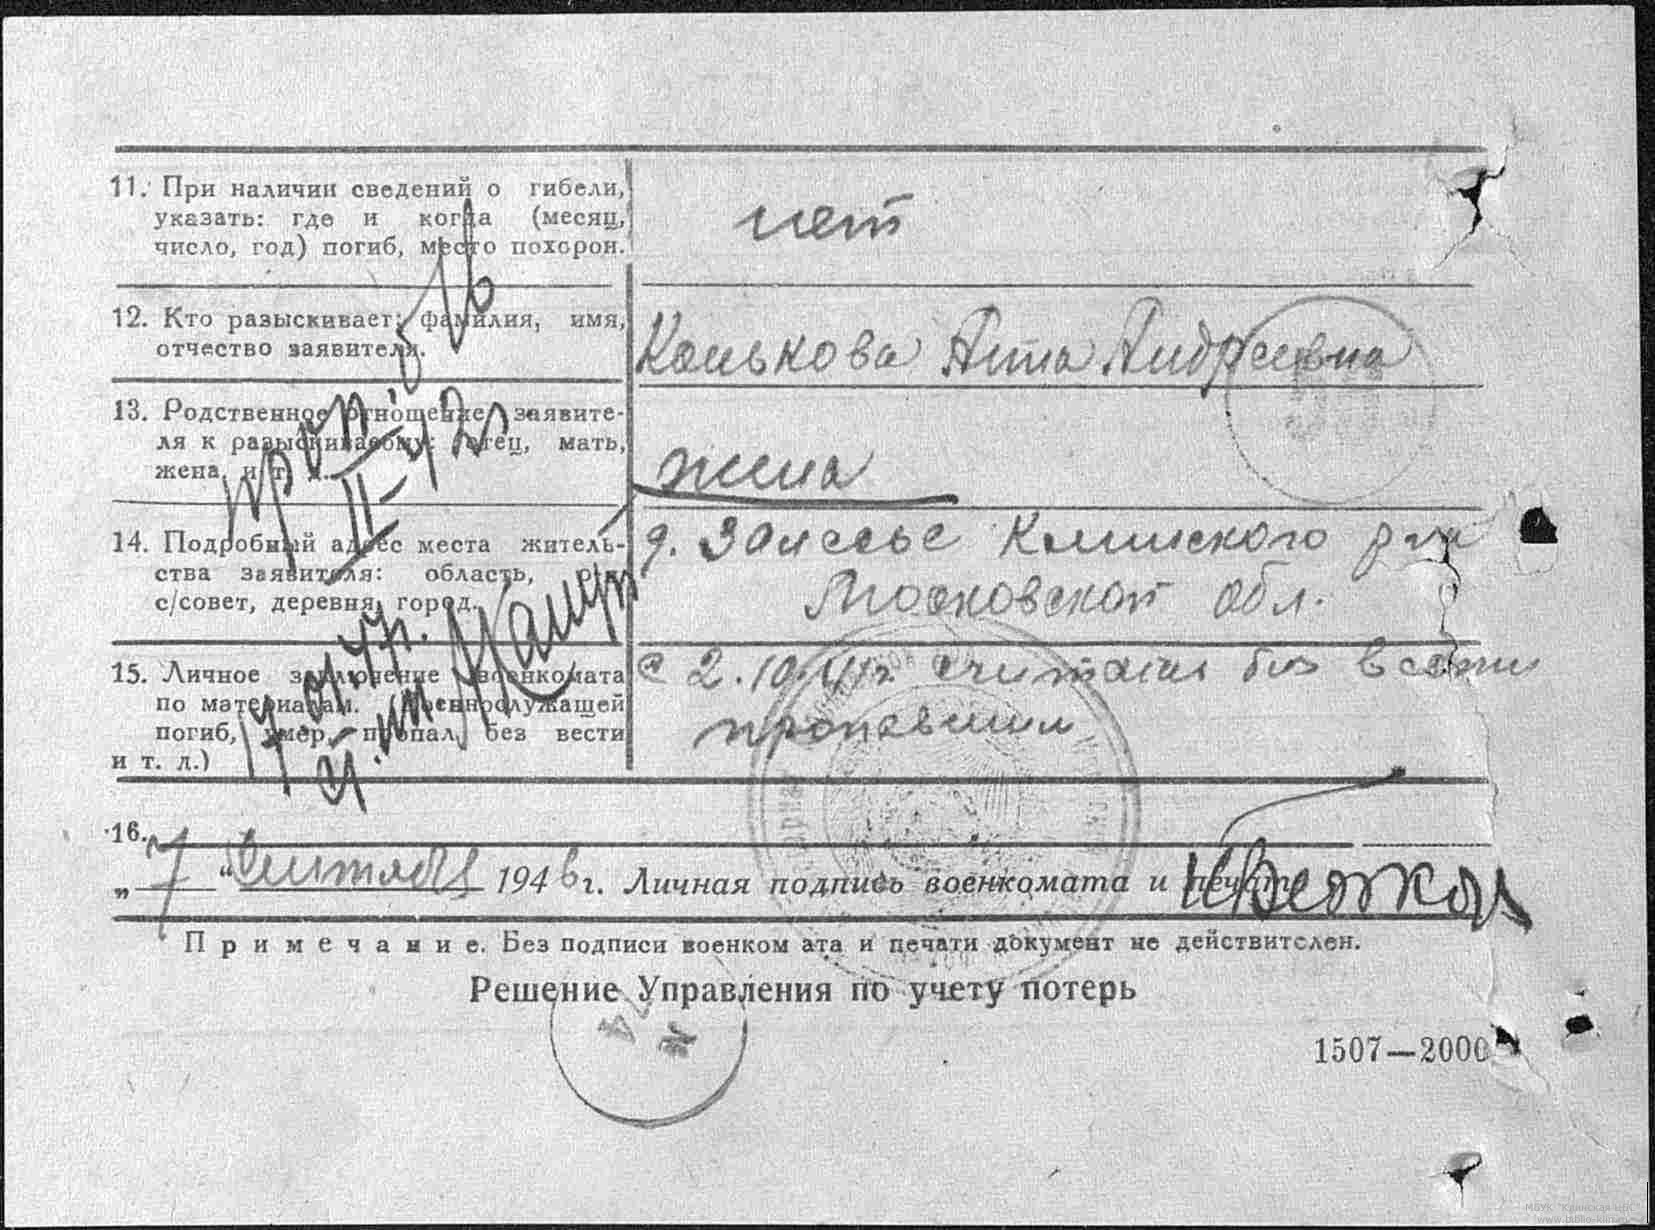 11. При наличии сведений о гибели,
указать: где и когда (месяц,
число, год) погиб, место похорон.
нет
12. Кто разыскивает: фамилия, имя,
отчество заявителя.
Конькова Анна Андреевна
13. Родственное отношение заявите-
ля к разыскиваемому: отец, мать,
жена, и т. д.
жена
14. Подробный адрес места житель-
ства заявителя: область,
с/совет, деревня, город.
д. Залесье Клинского р-на
Московской обл.
15. Личное заключение военкомата
по материалам. военнослужащей
погиб, умер, пропал, без вести
и т. л.)
с 2.10.41г. считать без вести
пропавшим
пр. проп. б/в
II-42г
17.01.47г.
16.
„ 7 “ сентября 1946 г. Личная подпись военкомата и печать
Примечание. Без подписи военком ата и печати документ не действителен.
Решение Управления по учету потерь
1507—2000
МБУК "Клинская ЦБС"
www.biblio-klin.ru